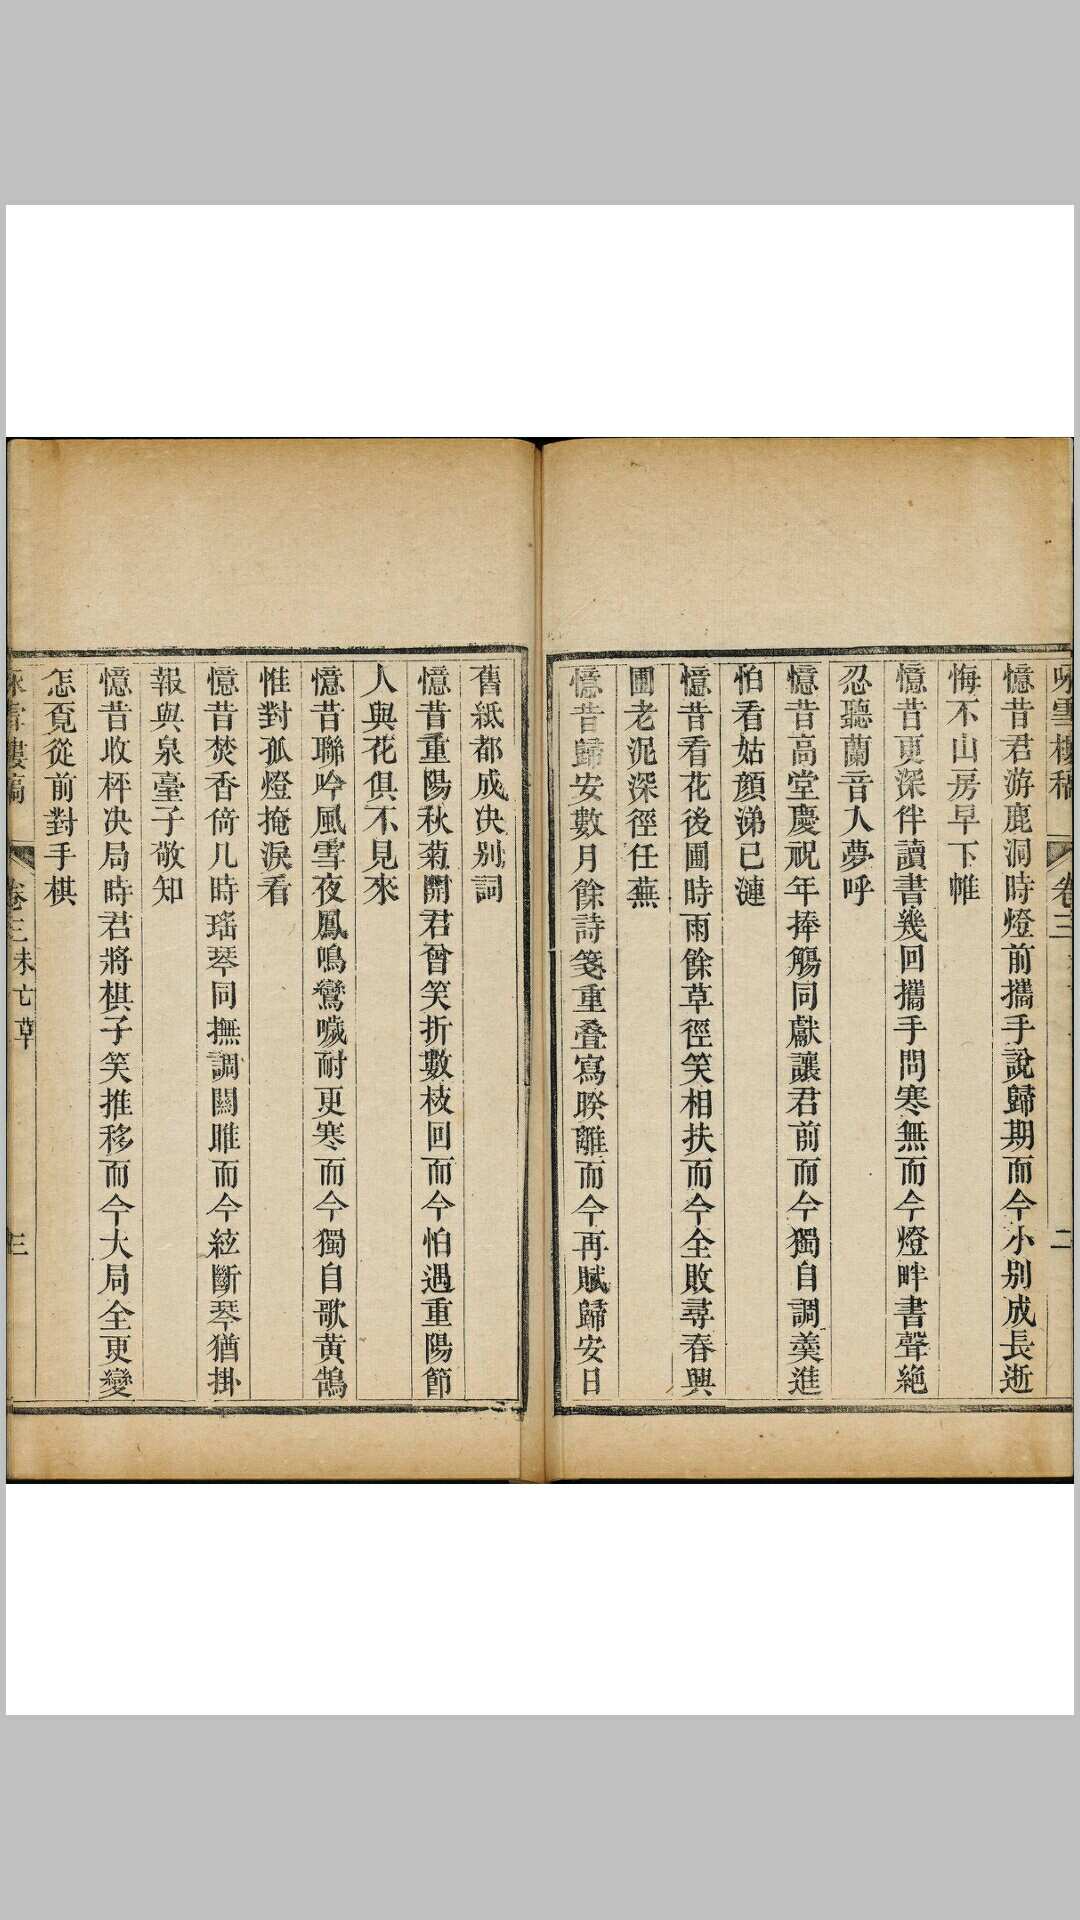 憶昔君游鹿洞時燈前攜手說歸期而今小别成長逝
悔不山房早下帷
憶昔更深伴讀書幾回攜手問寒無而今燈畔書聲絶
忍聽蘭音入夢呼
憶昔高堂慶祝年捧觴同獻讓君前而今獨自調羹進
怕看姑顏涕已漣
憶昔看花後圃時雨餘草徑笑相扶而今全敗尋春興
圃老泥深徑任蕪
憶昔歸安數月餘詩箋重叠寫睽離而今再賦歸安日
二
舊紙都成决别詞
憶昔重陽秋菊開君曾笑折數枝回而今怕遇重陽節
人與花俱不見來
憶昔聯吟風雪夜鳳鳴鸞噦耐更寒而今獨自歌黄鵠
惟對孤燈掩淚看
憶昔焚香倚几時瑤琴同撫調關雎而今絃斷琴猶掛
報與泉臺子敬知
憶昔收枰决局時君將棋子笑推移而今大局全更變
怎覔從前對手棋
卷三未亡草
三